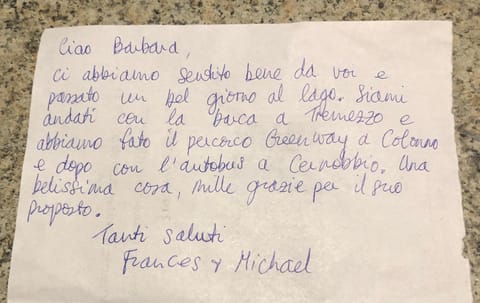 Ciao Barbara,
ci abbiamo sentito bene da voi e
passato un bel giorno al lago. Siami
andati con la barca a Tremezzo e
abbiamo fato il percorco Greenway a Colonno
e dopo con l'autobus a Cernobbio. Una
belissima cosa, mille grazie per il suo
proposto.
Tanti saluti
Frances + Michael